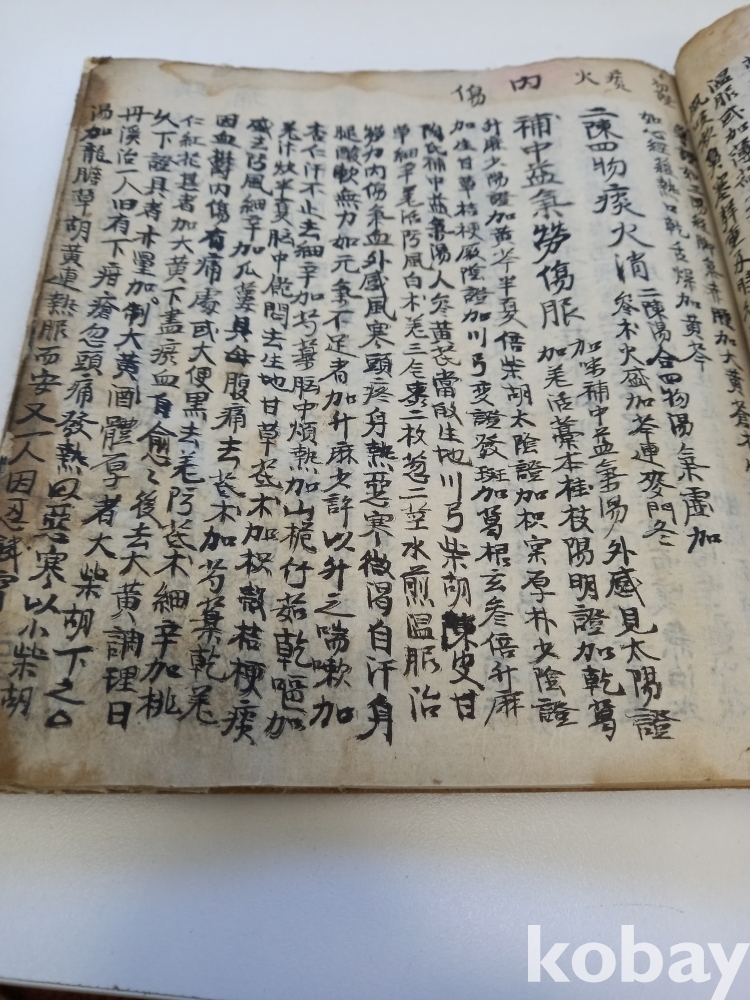 痰火
內傷
加心經雜熱口乾舌燥加黃芩
二陳四物痰火消
二陳湯合四物湯氣虛加
參朮火盛加芩連麥門冬
補中益氣勞傷服
加味補中益氣湯外感見太陽證
加羌活藁本桂枝陽明證加乾葛
升麻少陽證加黃芩半夏倍柴胡太陰證加枳宲厚朴少陰證
加生甘草桔梗厥陰證加川弓变證發斑加葛根玄參倍升麻
陶氏補中益氣湯人參黃芪當皈生地川弓柴胡陳皮甘
草細辛羌活防風白朮羌三片枣二枚葱二莖水煎溫服治
勞力內傷氣血外感風寒頭疼身熱惡寒微渴自汗身
腿酸軟無力如元氣不足者加升麻少許以升之喘嗽加
杏仁汗不止去細辛加芍藥胸中煩熱加山梔仔茹乾嘔加
羌汁炊半夏胸中飽悶去生地甘草芪朮加枳殼桔梗痰
盛去防風細辛加瓜蔞貝母腹痛去芪朮加芍藥乾羌
因血鬱內傷有痛處或大便黑去羌防芪朮細辛加桃
仁紅花甚者加大黃下盡瘀血自愈後去大黃調理日
久下證具者亦量加制大黃酒體厚者大柴胡下之
丹溪治一人旧有下疳瘡忽頭痛發熱惡寒以小柴胡
湯加龍膽草胡黃連熱服而安又一人因忍
kobay